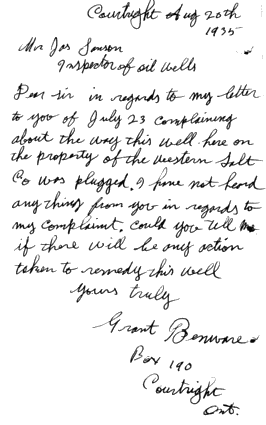 Courtright Aug 20th
1935
Mr Jas
Inspector of oil wells
Dear sir in regards to my letter
to you of July 23 complaining
about the way this well here on
the property of the western Salt
Co was plugged. I have not heard
any thing from you in regards to
my complaint. Could you tell me
if there will be any action
taken to remedy this well
Yours truly
Grant Benware
Box 190
Courtright
Ont.